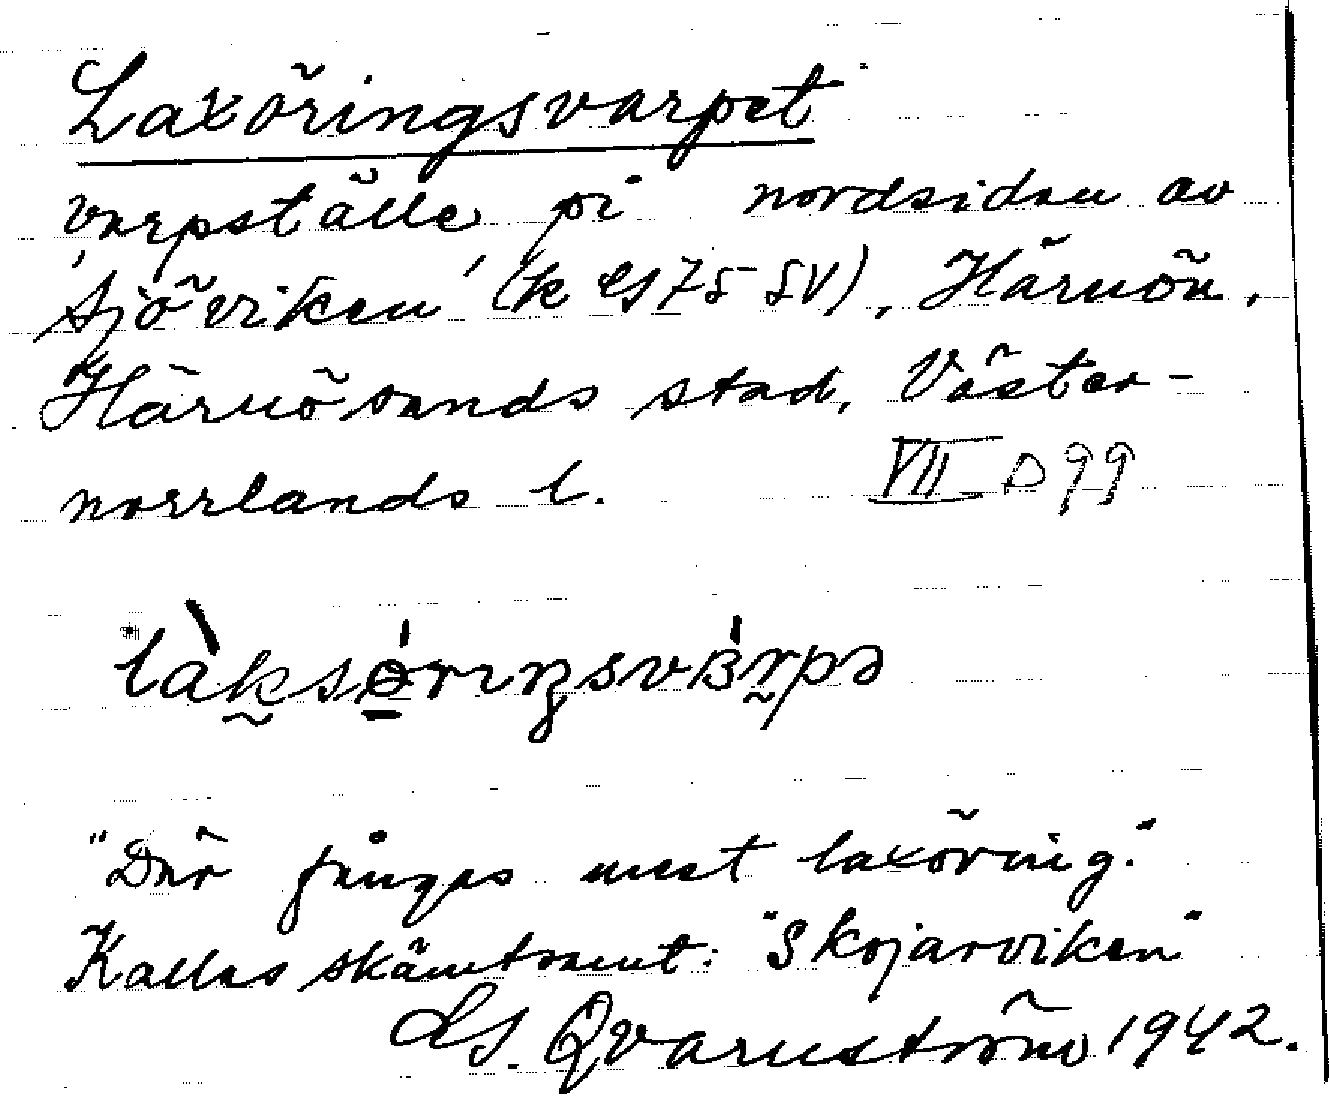 Laxöringsvarpet
varpställe på nordsidan av
'Sjöviken' (k 75 SV), Härnön,
Härnösands stad, Väster-
norrlands l. VII D 99
"Där fångas mest laxöring."
Kallas skämtsamt: "Skojarviken"
Qvarnström 1942.